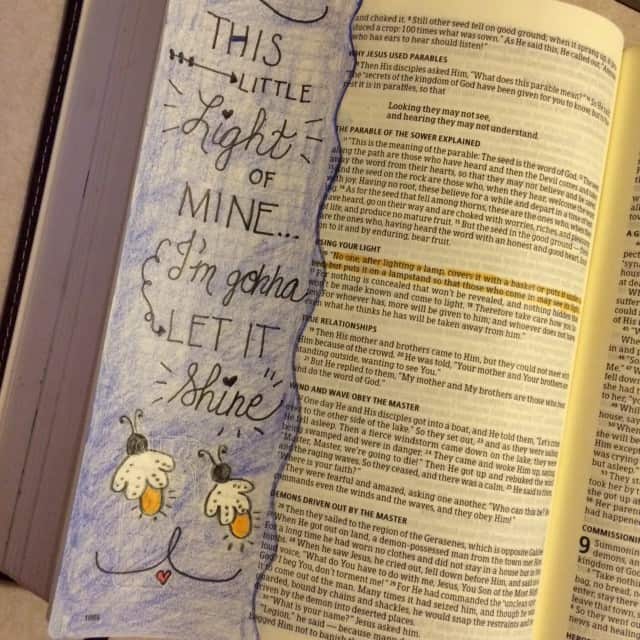 THIS
LITTLE
Light
OF
MINE...
I'm gonna
LET IT
Shine
1086
and choked it. 8 Still other seed fell on good ground; when it sprang up, it
duced a crop: 100 times what was sown." As He said this, He called out, "Anyone
who has ears to hear should listen!"
WHY JESUS USED PARABLES
9 Then His disciples asked Him, "What does this parable mean?" 10 So He said,
"The secrets of the kingdom of God have been given for you to know, but to
rest it is in parables, so that
Looking they may not see,
and hearing they may not understand.
THE PARABLE OF THE SOWER EXPLAINED
11 "This is the meaning of the parable: The seed is the word of God. 12 The
along the path are those who have heard and then the Devil comes and
away the word from their hearts, so that they may not believe and be saved.
and the seed on the rock are those who, when they hear, welcome the word
with joy. Having no root, these believe for a while and depart in a time of
14 As for the seed that fell among thorns, these are the ones who, when
have heard, go on their way and are choked with worries, riches, and pleasures
of life, and produce no mature fruit. 15 But the seed in the good ground—these
are the ones who, having heard the word with an honest and good heart,
on to it and by enduring, bear fruit.
USING YOUR LIGHT
"No one, after lighting a lamp, covers it with a basket or puts it under
bed, but puts it on a lampstand so that those who come in may see its light.
For nothing is concealed that won't be revealed, and nothing hidden
won't be made known and come to light. 18 Therefore take care how you listen.
For whoever has, more will be given to him; and whoever does not have,
even what he thinks he has will be taken away from him."
TRUE RELATIONSHIPS
19 Then His mother and brothers came to Him, but they could not meet with
Him because of the crowd. 20 He was told, "Your mother and Your brothers are
standing outside, wanting to see You."
21 But He replied to them, "My mother and My brothers are those who hear
and do the word of God."
WIND AND WAVE OBEY THE MASTER
One day He and His disciples got into a boat, and He told them, "Let's cross
over to the other side of the lake." So they set out, 23 and as they were sailing
He fell asleep. Then a fierce windstorm came down on the lake; they were
being swamped and were in danger. 24 They came and woke Him up, saying,
"Master, Master, we're going to die!" Then He got up and rebuked the wind
and the raging waves. So they ceased, and there was a calm. 25 He said to them,
"Where is your faith?"
They were fearful and amazed, asking one another, "Who can this be? He
commands even the winds and the waves, and they obey Him!"
DEMONS DRIVEN OUT BY THE MASTER
26 Then they sailed to the region of the Gerasenes, which is opposite Galilee.
When He got out on land, a demon-possessed man from the town met Him.
For a long time he had worn no clothes and did not stay in a house but in
28 When he saw Jesus, he cried out, fell down before Him, and said in a
voice, "What do You have to do with me, Jesus, You Son of the Most High
God? I beg You, don't torment me!" 29 For He had commanded the unclean spirit
to come out of the man. Many times it had seized him, and though he was
guarded, bound by chains and shackles, he would snap the restraints and
driven by the demon into deserted places.
30 "What is your name?" Jesus asked him.
"Legion," he said—because many
begged Him not to banish
COMMISSIONING
9 Summoning
demons, and
kingdom of God
Take nothing
bag, no bread,
enter, stay there
leave that town,
So they went
news and healing